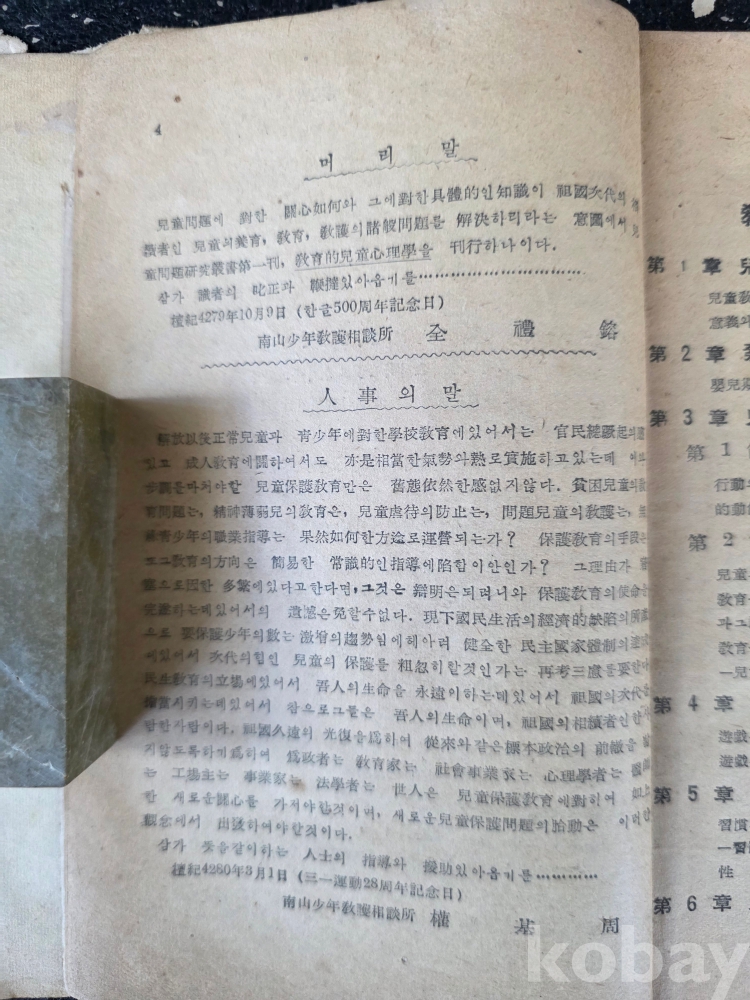 4
머 리 말
兒童問題에 對한 關心如何와 그에對한具體的인知識이 祖國次代의
續者인 兒童의養育, 敎育, 敎護의諸般問題를 解決하리라는 意圖에서 兒
童問題硏究叢書第一刊, 敎育的兒童心理學을 刊行하나이다.
삼가 讀者의 叱正과 鞭撻있아옵기를……………………
檀紀4279年10月9日 (한글500周年記念日)
南山少年敎護相談所 全 禮 鎔
人 事 의 말
解放以後正常兒童과 靑少年에對한學校敎育에있어서는 官民總蹶起의
있고 成人敎育에關하여서도 亦是相當한氣勢와熱로實施하고있는데
步調를마처야할 兒童保護敎育만은 舊態依然한感없지않다. 貧困兒童의
育問題는, 精神薄弱兒의敎育은, 兒童虐待의防止는, 問題兒童의敎護는,
靑少年의職業指導는 果然如何한方途로運營되는가? 保護敎育의手段은
또그敎育의方向은 簡易한 常識的인指導에陷함이안인가? 그理由가
으로因한 多繁에있다고한다면, 그것은 辯明은되려니와 保護敎育의使命을
完遂하는데있어서의 遺憾은免할수없다. 現下國民生活의經濟的缺陷의所
으로 要保護少年의數는 激增의趨勢임에헤아려 健全한 民主國家體制의
에있어서 次代의힘인 兒童의 保護를 粗忽히할것인가는 再考三慮를要한다
民生敎育의立場에있어서 吾人의生命을 永遠이하는데있어서 祖國의次代를
시키는데있어서 참으로그들은 吾人의生命이며, 祖國의相續者인
한사람이다. 祖國久遠의 光復을爲하여 從來와같은標本政治의 前轍을
지않도록하기爲하여 爲政者는 敎育家는 社會事業家는 心理學者는
는 工場主는 事業家는 法學者는 世人은 兒童保護敎育에對하여
한 새로운關心을 가져야할것이며, 새로운兒童保護問題의胎動은 이러한
觀念에서 出發하여야할것이다.
삼가 뜻을같이하는 人士의 指導와 援助있아옵기를…………
檀紀4280年3月1日 (三一運動28周年記念日)
南山少年敎護相談所 權 基 周
第 1 章
兒童
意義와
第 2 章
嬰兒期
第 3 章
第 1
行動의
的動
第 2
兒童
敎育
과그
敎育
一兒
第 4 章
遊戲
遊戲
第 5 章
習慣
一習
性
第 6 章
kobay